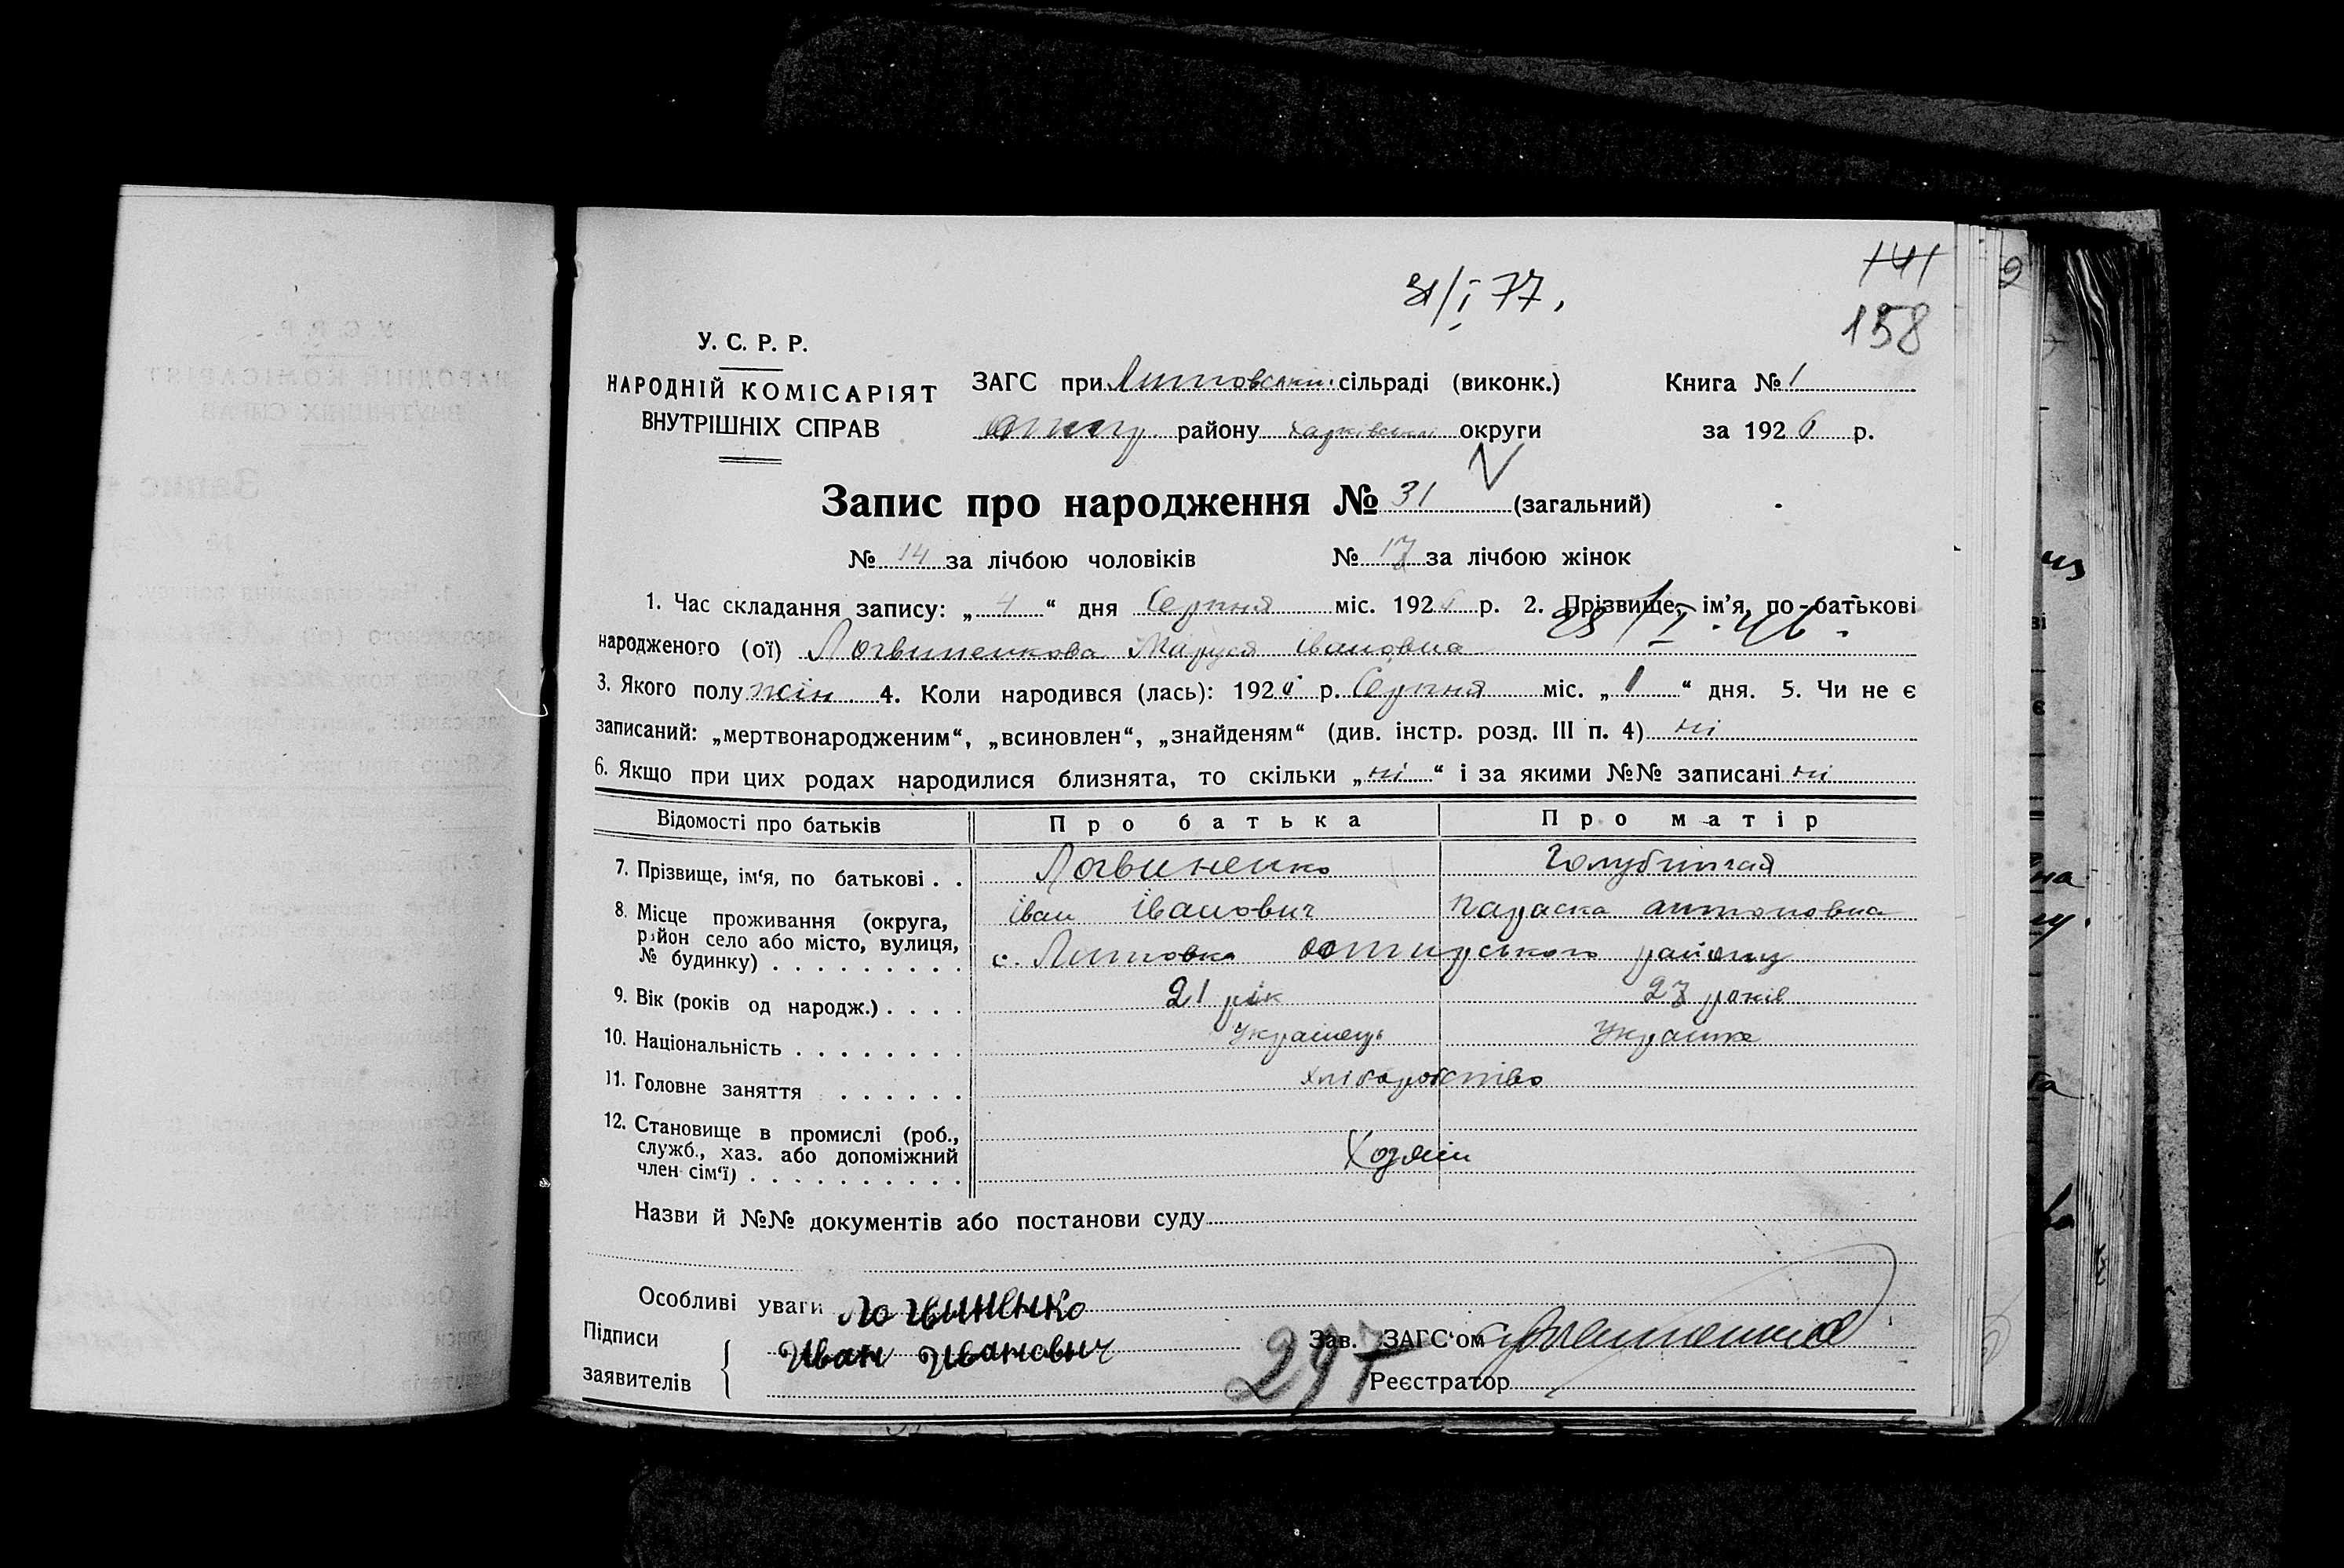 31/I 77.
141
158
У. С. Р. Р.
НАРОДНІЙ КОМІСАРІЯТ
ВНУТРІШНІХ СПРАВ
ЗАГС при Литовській сільраді (виконк.)
району Харківської округи
Книга № 1
за 1926 р.
Запис про народження № 31 (загальний)
№ 14 за лічбою чоловіків № 17 за лічбою жінок
1. Час складання запису: „ 4 “ дня Серпня міс. 1926 р. 2. Прізвище, ім’я, по-батькові
народженого (ої) Логвиненкова Маруся Івановна
3. Якого полу жін. 4. Коли народився (лась): 1926 р. Серпня міс. „ 1 “ дня. 5. Чи не є
записаний: „мертвонародженим“, „всиновлен“, „знайденям“ (див. інстр. розд. III п. 4) ні
6. Якщо при цих родах народилися близнята, то скільки „ ні “ і за якими №№ записані ні
Відомості про батьків Про батька Про матір
7. Прізвище, ім‘я, по батькові . . Логвиненко
Іван Іванович Параска Антоновна
8. Місце проживання (округа,
район село або місто, вулиця,
№ будинку) . . . . . . . . . с. Литовка району
9. Вік (років од народж.) . . . . 21 рік 27 років
10. Національність . . . . . . . . Українець Українка
11. Головне заняття . . . . . . Хліборобство
12. Становище в промислі (роб.,
служб., хаз. або допоміжний
член сім‘ї) . . . . . . . . . . Хозяїн
Назви й №№ документів або постанови суду
Особливі уваги Логвиненко
Підписи
заявителів
Иван Иванович
297
Зав. ЗАГС‘ом
Реєстратор